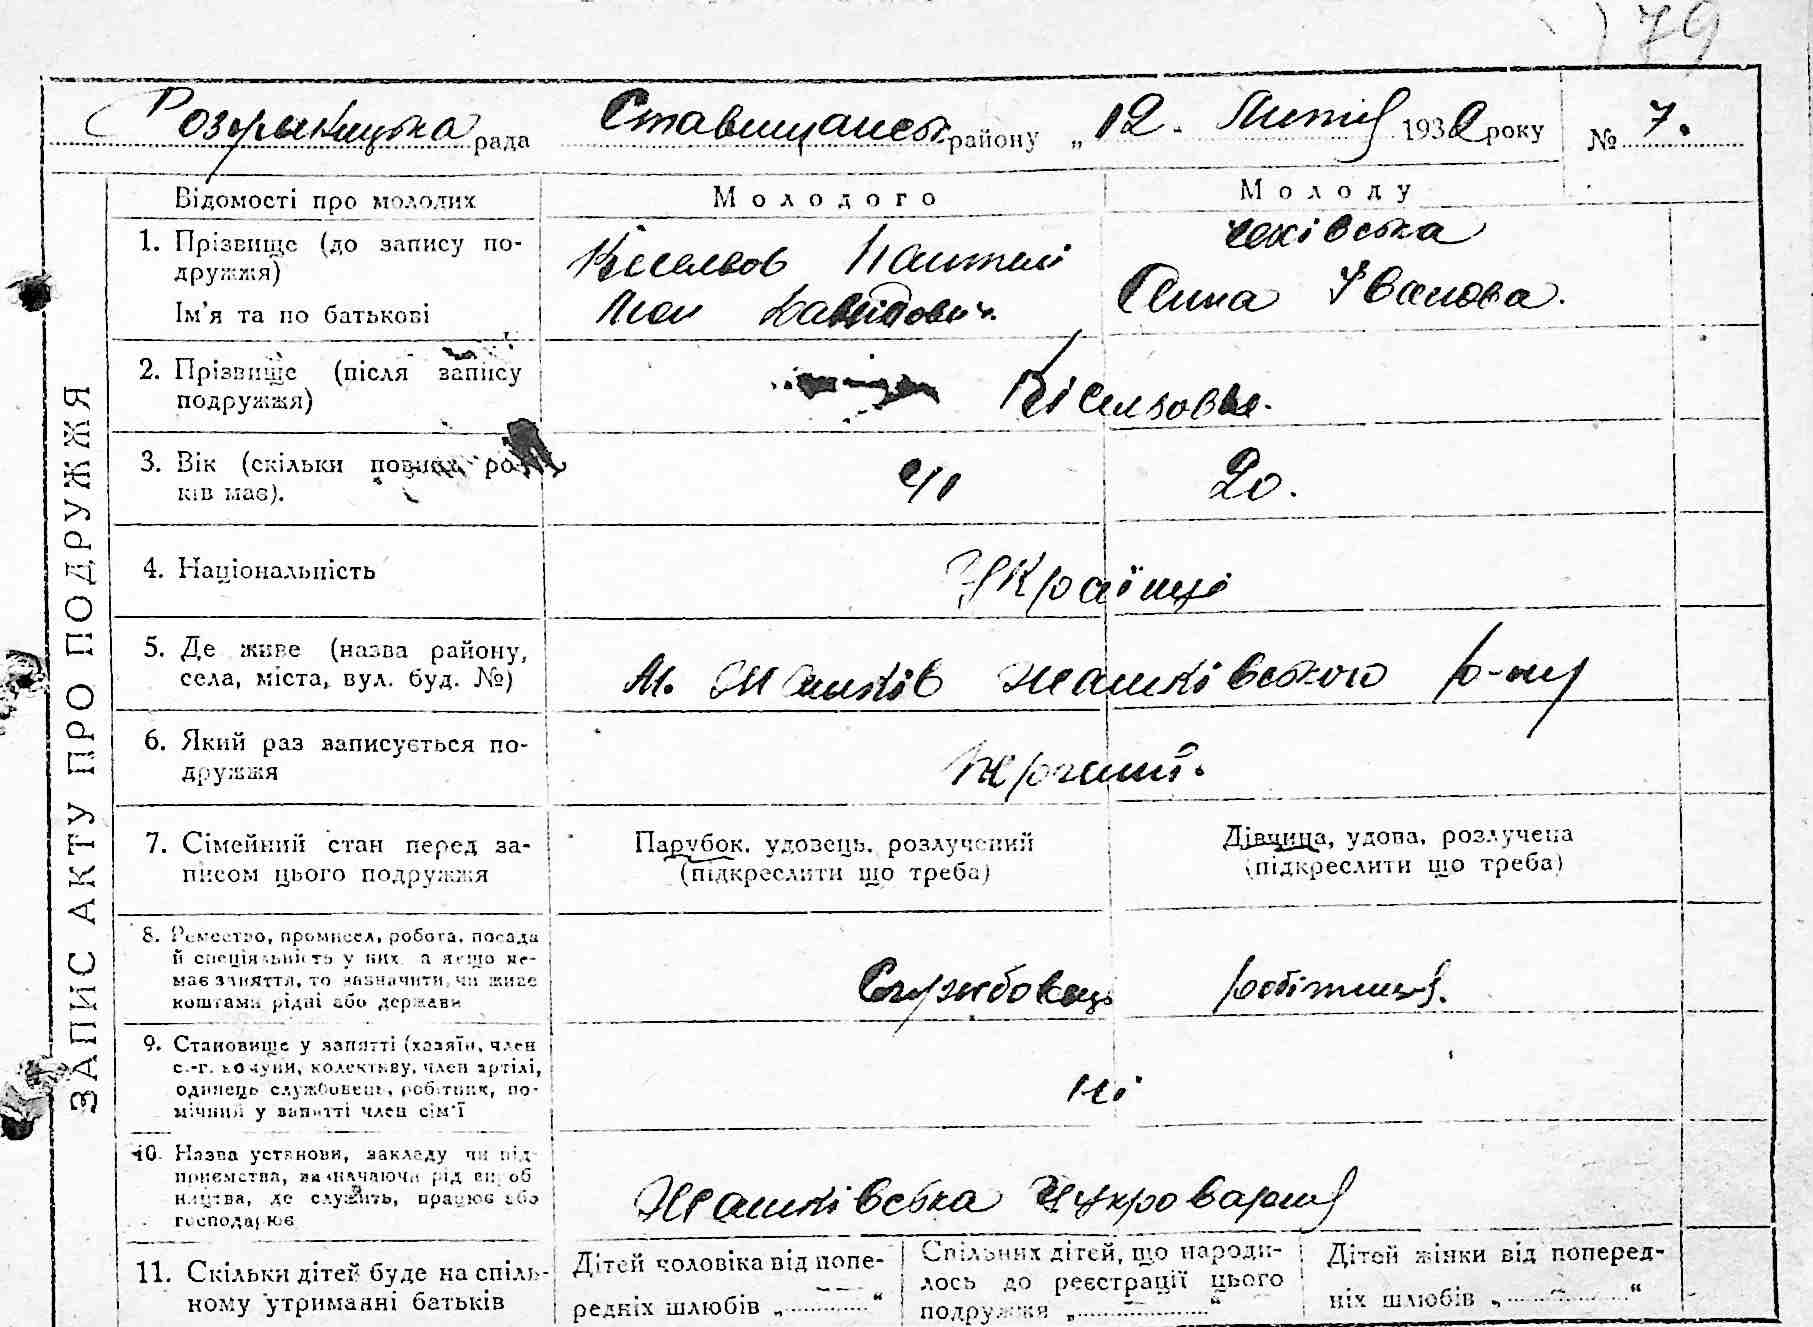 179
Розумницька рада Ставищанськ району „12. Лютня 1932 року № 7.
ЗАПИС АКТУ ПРО ПОДРУЖЖЯ
Відомості про молодих
Молодого
Молоду
1. Прізвище (до запису по-
дружжя)
Ім'я та по батькові
Кісельов Пантелі
Мон Давидович.
Чехівська
Ганна Іванова.
2. Прізвище (після запису
подружжя)
Кісельови.
3. Вік (скільки повних ро-
ків має).
41
20.
4. Національність
Українці
5. Де живе (назва району,
села, міста, вул. буд. №)
М. Жашків Жашківського р-ну
6. Який раз записується по-
дружжя
Перший.
7. Сімейний стан перед за-
писом цього подружжя
Парубок, удовець, розлучений
(підкреслити що треба)
Дівчина, удова, розлучена
(підкреслити що треба)
8. Ремество, промисел, робота, посада
й спеціяльність у них, а якщо не-
має заняття, то зазначити, чи живе
коштами рідні або держави
Службовець
робітниця.
9. Становище у занятті (хазяїн, член
с.-г. комуни, колективу, член артілі,
одинець службовець, робітник, по-
мічний у занятті член сім'ї
Ні
10. Назва установи, закладу чи під-
приємства, зазначаючи рід вироб
ництва, де служить, працює або
господарює
Жашківська Цукроварня
11. Скільки дітей буде на спіль-
ному утриманні батьків
Дітей чоловіка від попе-
редніх шлюбів „ — “
Спільних дітей, що народи-
лось до реєстрації цього
подружжя „ — “
Дітей жінки від поперед-
ніх шлюбів „ — “